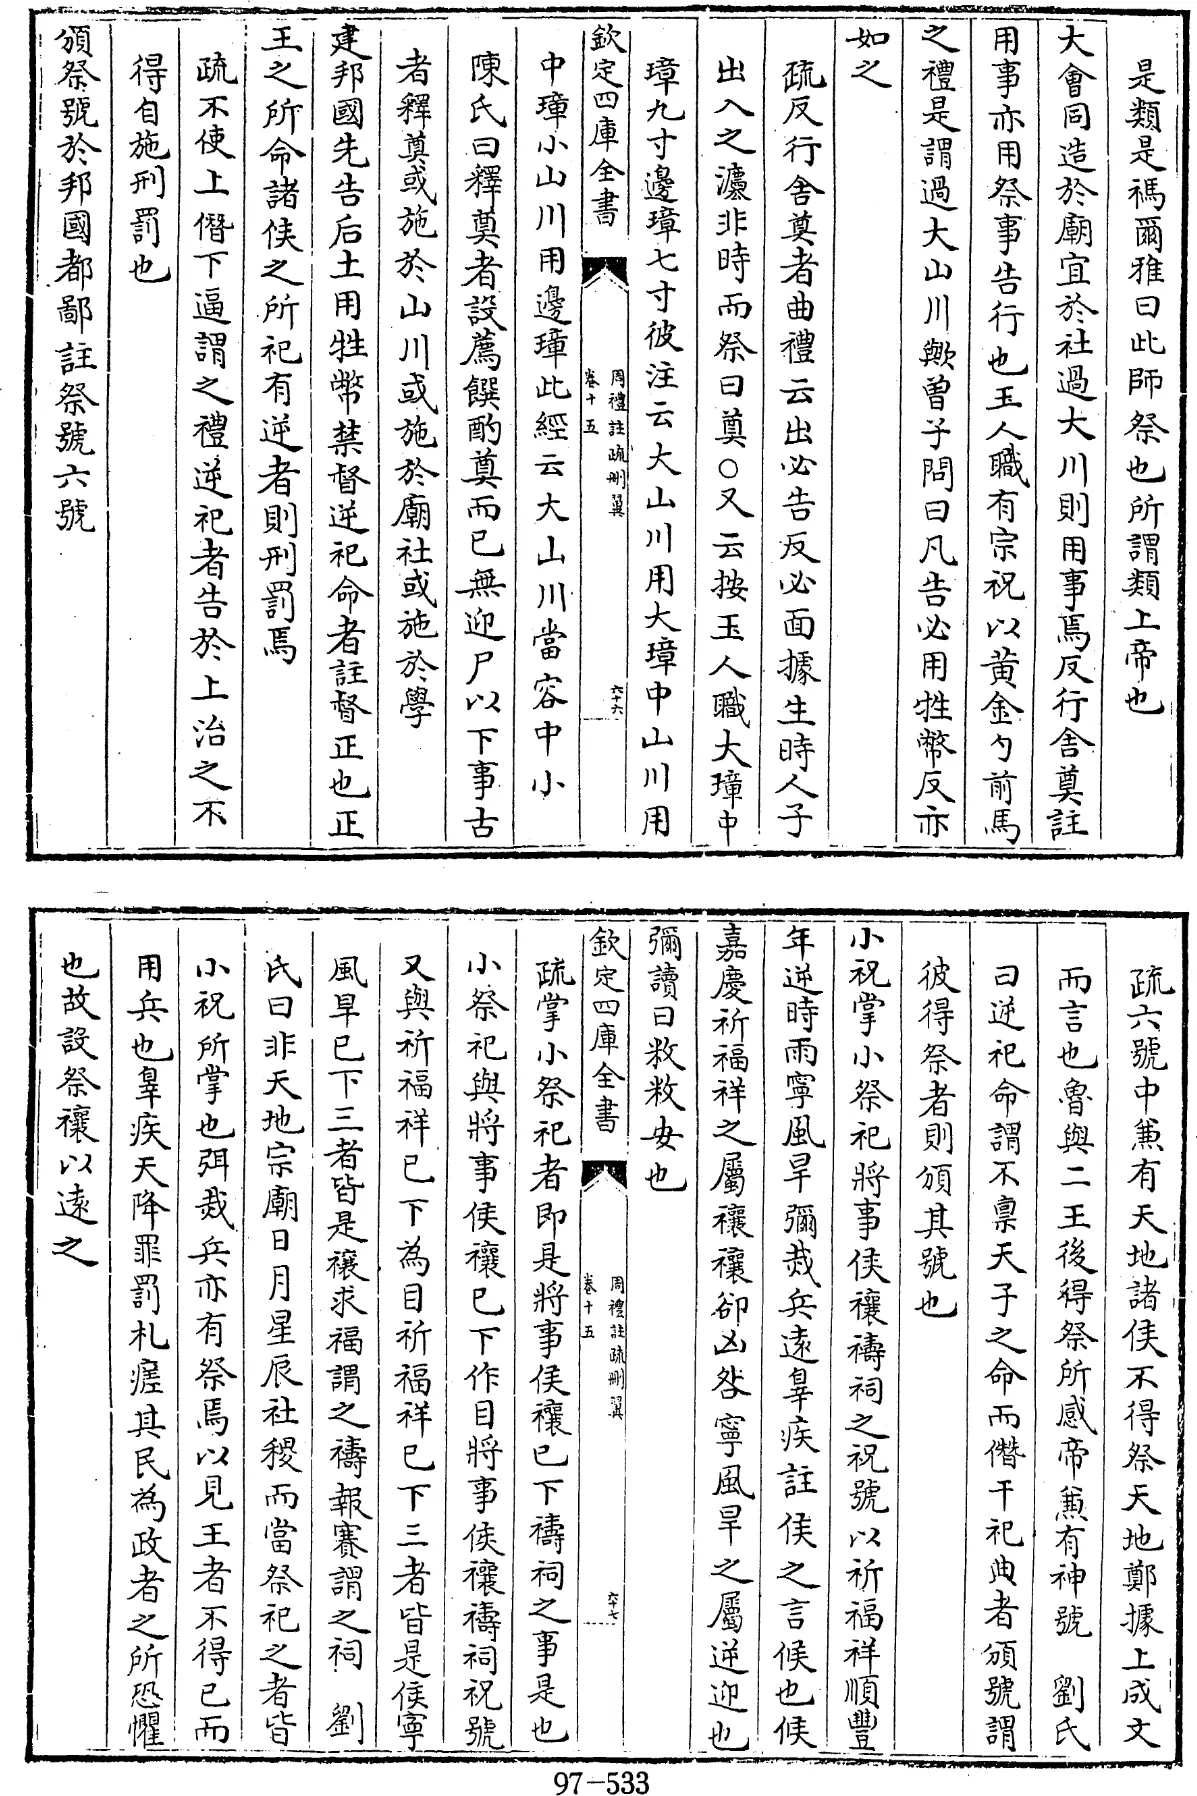 是類是禡爾雅曰此師祭也所謂類上帝也
大會同造於廟宜於社過大川則用事焉反行舍奠註
用事亦用祭事告行也玉人職有宗祝以黃金勺前馬
之禮是謂過大山川歟曾子問曰凡告必用牲幣反亦
如之
疏反行舍奠者曲禮云出必告反必面據生時人子
出入之灋非時而祭曰奠○又云按玉人職大璋中
璋九寸邊璋七寸彼注云大山川用大璋中山川用
欽定四庫全書
周禮註疏刪翼
卷十五
六十六
中璋小山川用邊璋此經云大山川當容中小
陳氏曰釋奠者設薦饌酌奠而已無迎尸以下事古
者釋奠或施於山川或施於廟社或施於學
建邦國先告后土用牲幣禁督逆祀命者註督正也正
王之所命諸侯之所祀有逆者則刑罰焉
疏不使上僭下逼謂之禮逆祀者告於上治之不
得自施刑罰也
頒祭號於邦國都鄙註祭號六號
疏六號中兼有天地諸侯不得祭天地鄭據上成文
而言也魯與二王後得祭所感帝兼有神號 劉氏
曰逆祀命謂不稟天子之命而僭干祀典者頒號謂
彼得祭者則頒其號也
小祝掌小祭祀將事侯禳禱祠之祝號以祈福祥順豐
年逆時雨寧風旱彌烖兵遠辠疾註侯之言候也候
嘉慶祈福祥之屬禳禳卻凶咎寧風旱之屬逆迎也
彌讀曰敉敉安也
欽定四庫全書
周禮註疏刪翼
卷十五
六十七
疏掌小祭祀者即是將事侯禳已下禱祠之事是也
小祭祀與將事侯禳已下作目將事侯禳禱祠祝號
又與祈福祥已下為目祈福祥已下三者皆是侯寧
風旱已下三者皆是禳求福謂之禱報賽謂之祠 劉
氏曰非天地宗廟日月星辰社稷而當祭祀之者皆
小祝所掌也弭烖兵亦有祭焉以見王者不得已而
用兵也辠疾天降罪罰札瘥其民為政者之所恐懼
也故設祭禳以遠之
97-533